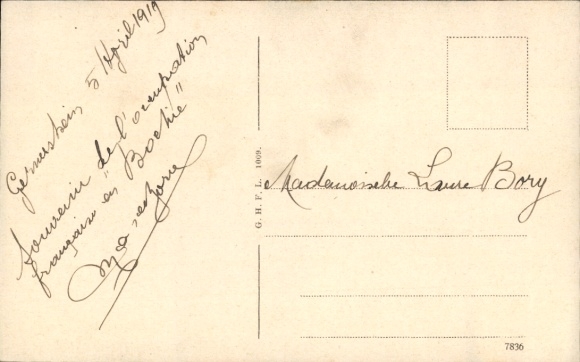 Germersheim 5 April 1919
Souvenir de l'occupation
française en "Bochie"
Mademoiselle Laure Bory
G. H. F. L. 1009.
7836